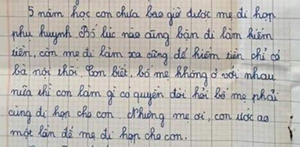 5 năm học con chưa bao giờ được mẹ đi họp
phụ huynh. Bố lúc nào cũng bận đi làm kiếm
tiền, còn mẹ đi làm xa cũng để kiếm tiền chỉ có
bà nội thôi. Con biết, bố mẹ không ở với nhau
nữa thì con làm gì có quyền đòi hỏi bố mẹ phải
cùng đi họp cho con. Nhưng mẹ ơi, con ước ao
một lần để mẹ đi họp cho con.